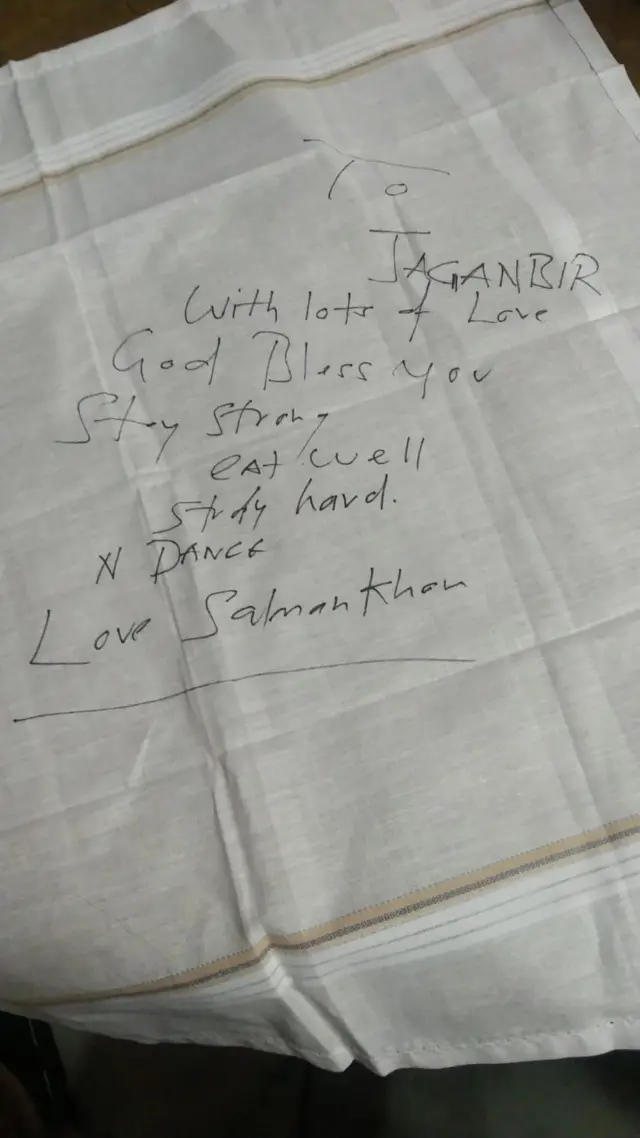 To
JAGANBIR
With lots of Love
God Bless you
Stay strong
eat well
study hard.
N DANCE
Love Salman Khan